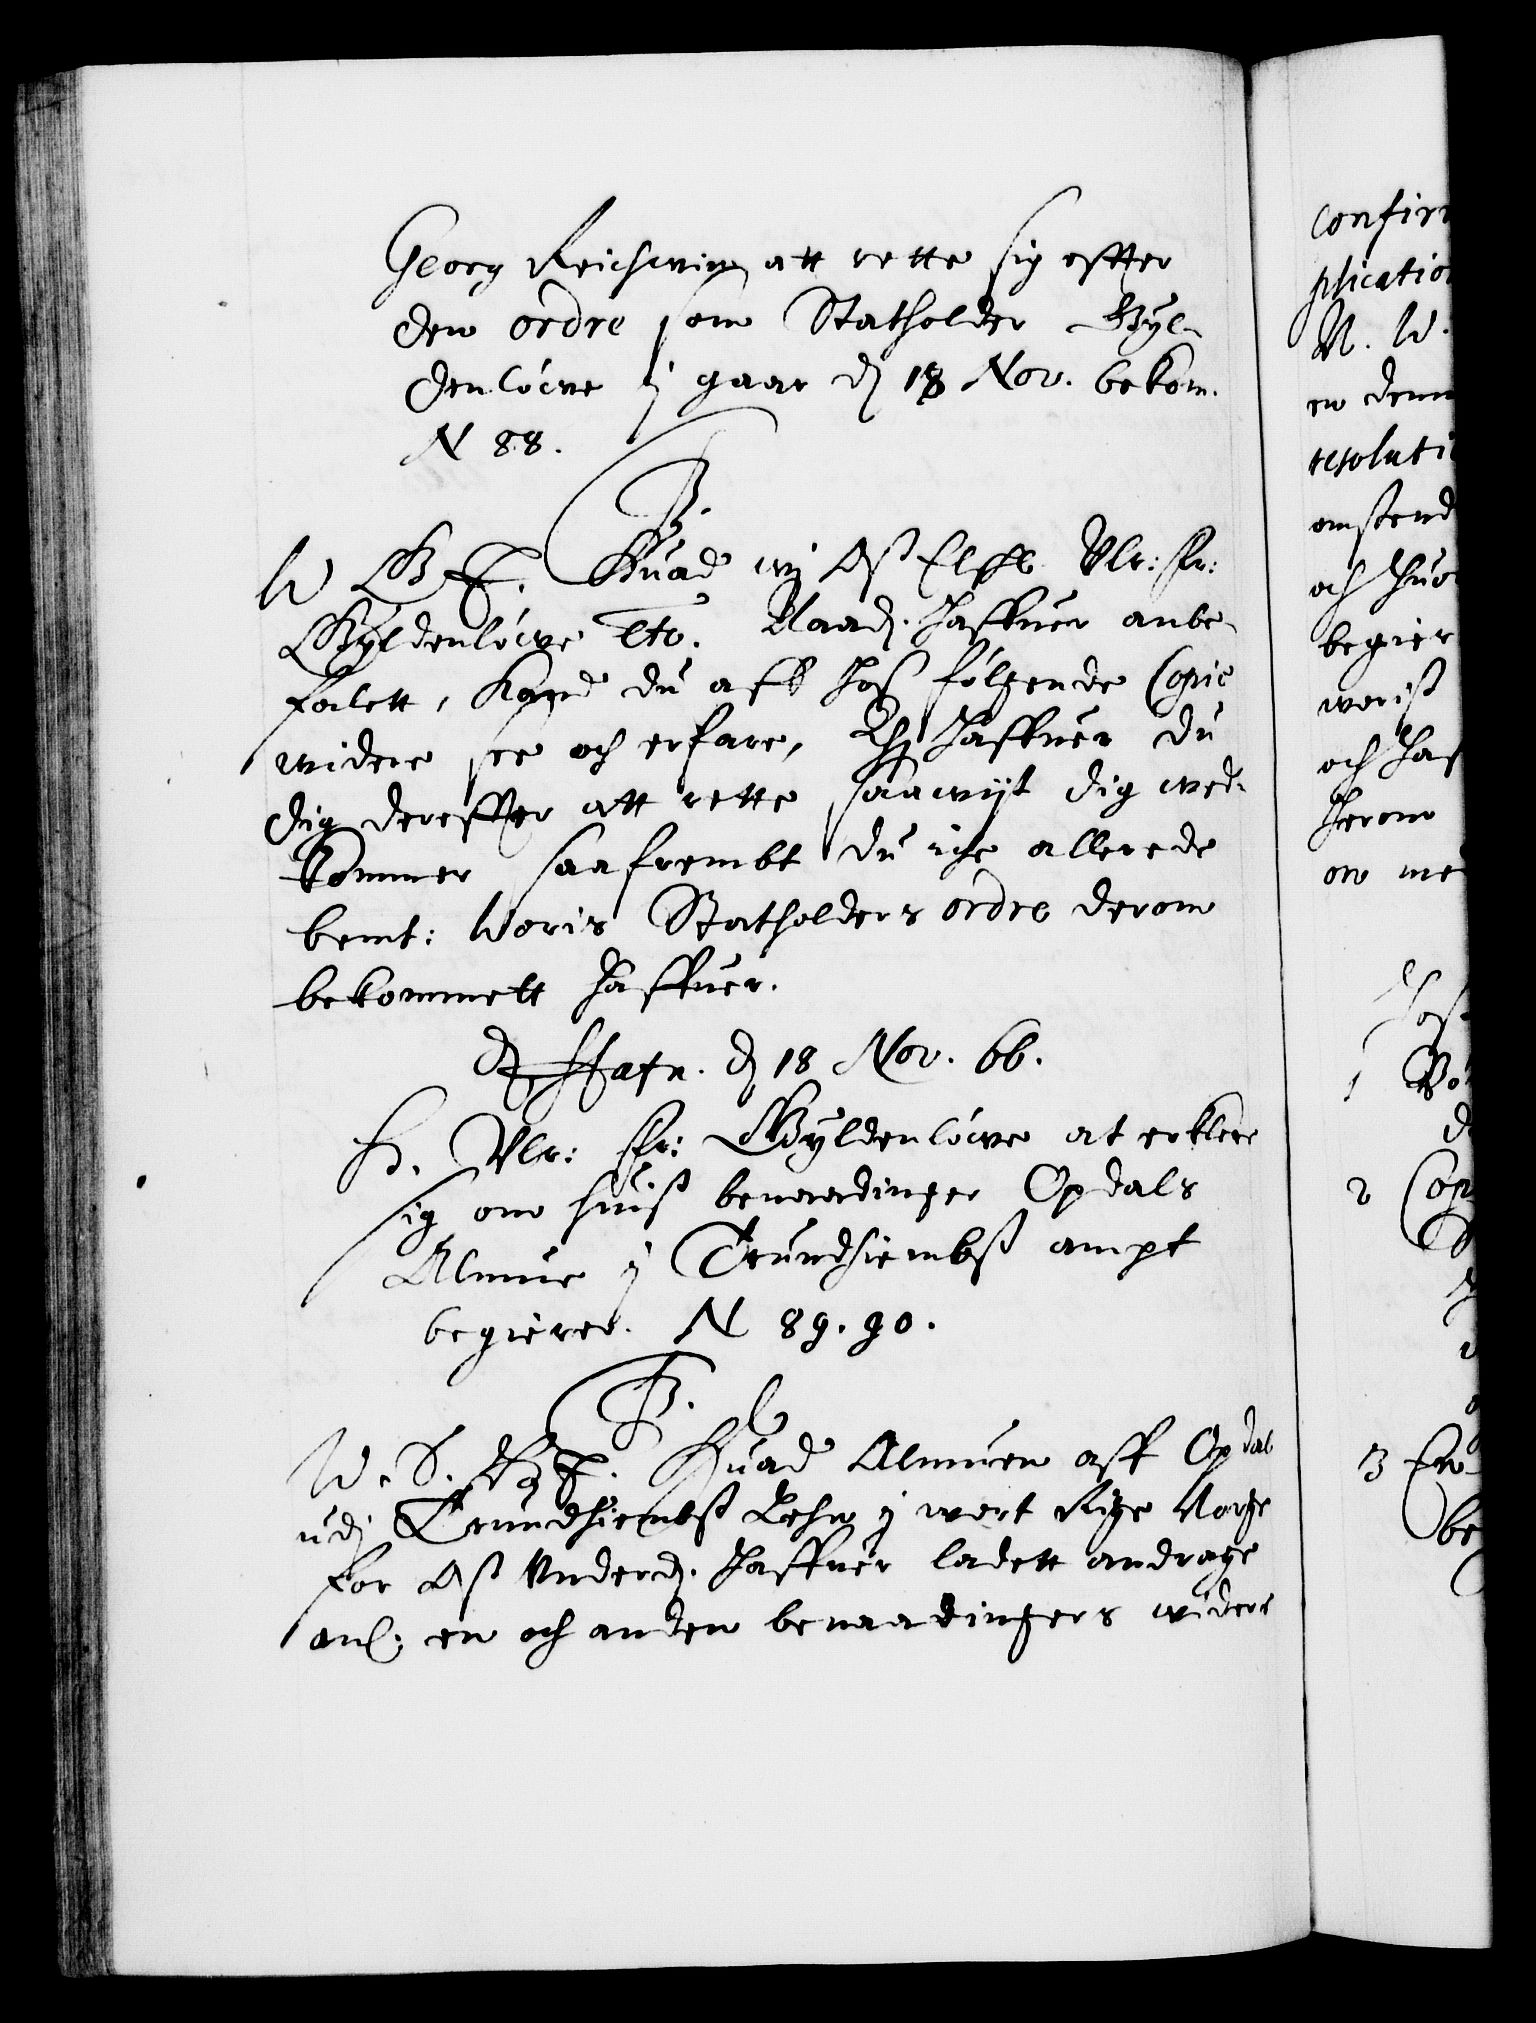 Georg Reichwein att rette sig effter
den ordre som Statholder Gyl-
denlöwe j gaar dj 18 Nov. bekom.
N 88.
F3.
W G T. Huad wj Oss Elskl. Vlr: Fr:
Gyldenlöwe etc. Naadj. haffuer anbe-
falett, Kand du aff hos fölgende Copie
widere see och erfare, haffuer du
dig dereffter att rette saawijt dig wed-
kommer saafrembt du iche allerede
bemt: Woris Statholders ordre derom
bekommett haffuer.
Hafn. dj 18 Nov. 66.
H. Vlr: Fr: Gyldenlöwe at erklere
sig om huis benaadinger Opdals
Almue j Trundhiembs ampt
begierer. N 89. 90.
F3.
W. S. G T. Huad Almuen aff Opdal
udj Trundhiembs Lehn j wort Rige Norge
for Oss Underdj. haffuer ladett andrage
anl: en och anden benaadingers widere
confir
plicatio
N. W.
en denn
resoluti
omstend
och huo
begier
worist
och haf
herom
on me
Hos
1
2 Cop
3 En
be